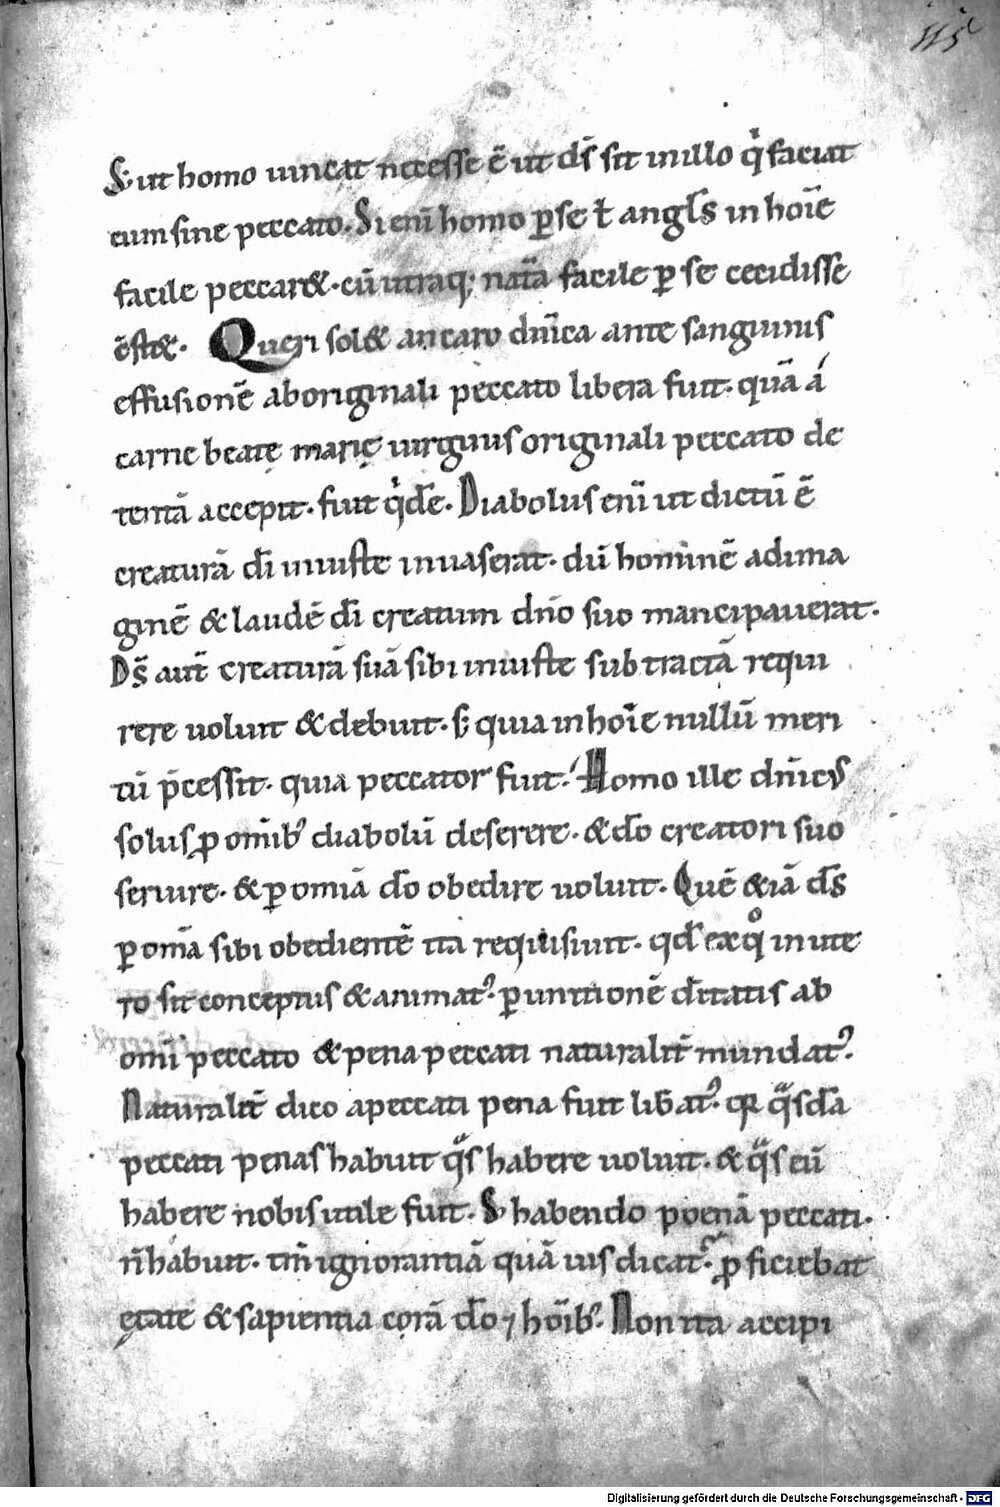 115
S; ut homo uincat necesse ē ut ds̄ sit inillo qi faciat
eum sine peccato. Si eni̅ homo ꝑ se ł angls̄ in hoı̅e
facile peccar&. cū utraq; nat̅a facile ꝑ se cecidisse
ēst&. Queri sol& an caro dn̅ica ante sanguinis
effusionē aboriginali peccato libera fuit. quā á
carne beatę marię uirginis originali peccato de
tentā accepit. fuit qͥde̅. Diabolus eni̅ ut dictū ē
creaturā di̅ iniuste inuaserat. dū hominē adima
ginē & laudē di̅ creatum dn̅o suo mancipauerat.
Ds̄ aut̄ creaturā suā sibi iniuste subtractā requi
rere uoluit & debuit. s; quia in hoı̅e nullū meri
tū p̄cessit. quia peccator fuit. Homo ille dn̅icus
solus ꝓ omı̅bꝰ diabolū deserere. & do̅ creatori suo
seruire. & ꝑ omı̅a do̅ obedire uoluit. Quē &iā ds̄
ꝑ om̅a sibi obedientē ita requisiuit. qd̄ ex qͦ in ute
ro sit conceptus & animatꝰ. ꝑ unitionē di̅tatis ab
omı̅ peccato & pena peccati naturalit̄ mundatꝰ.
Naturalit̄ dico apeccati pena fuit lib̅atꝰ. qr qͣsda̅
peccati penas habuit qͣs habere uoluit. & qͣs eū
habere nobis utile fuit. S; habendo poenā peccati.
n̄ habuit. tm̄ ignorantiā quā uis dicatꝰ. ꝓficiebat
ętate & sapientia corā do̅ ⁊ hoı̅bꝰ. Non ita accipi
Digitalisierung gefördert durch die Deutsche Forschungsgemeinschaft - DFG